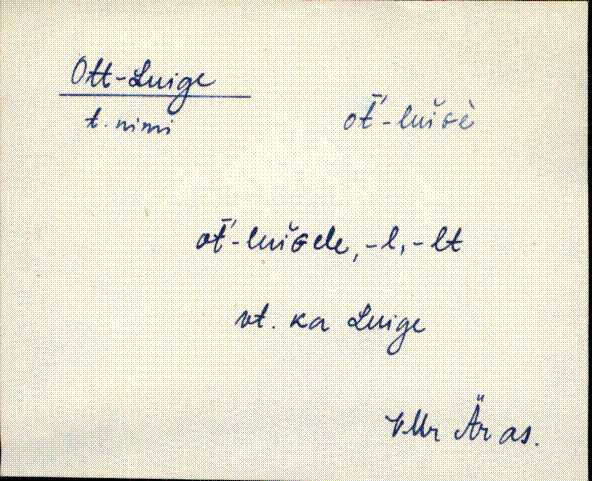 Ott-Luige
t. nimi
ot̄'-luĭɢè
ot̄'-luĭɢele, -l, -lt
vt. ka Luige
VMr Äras.